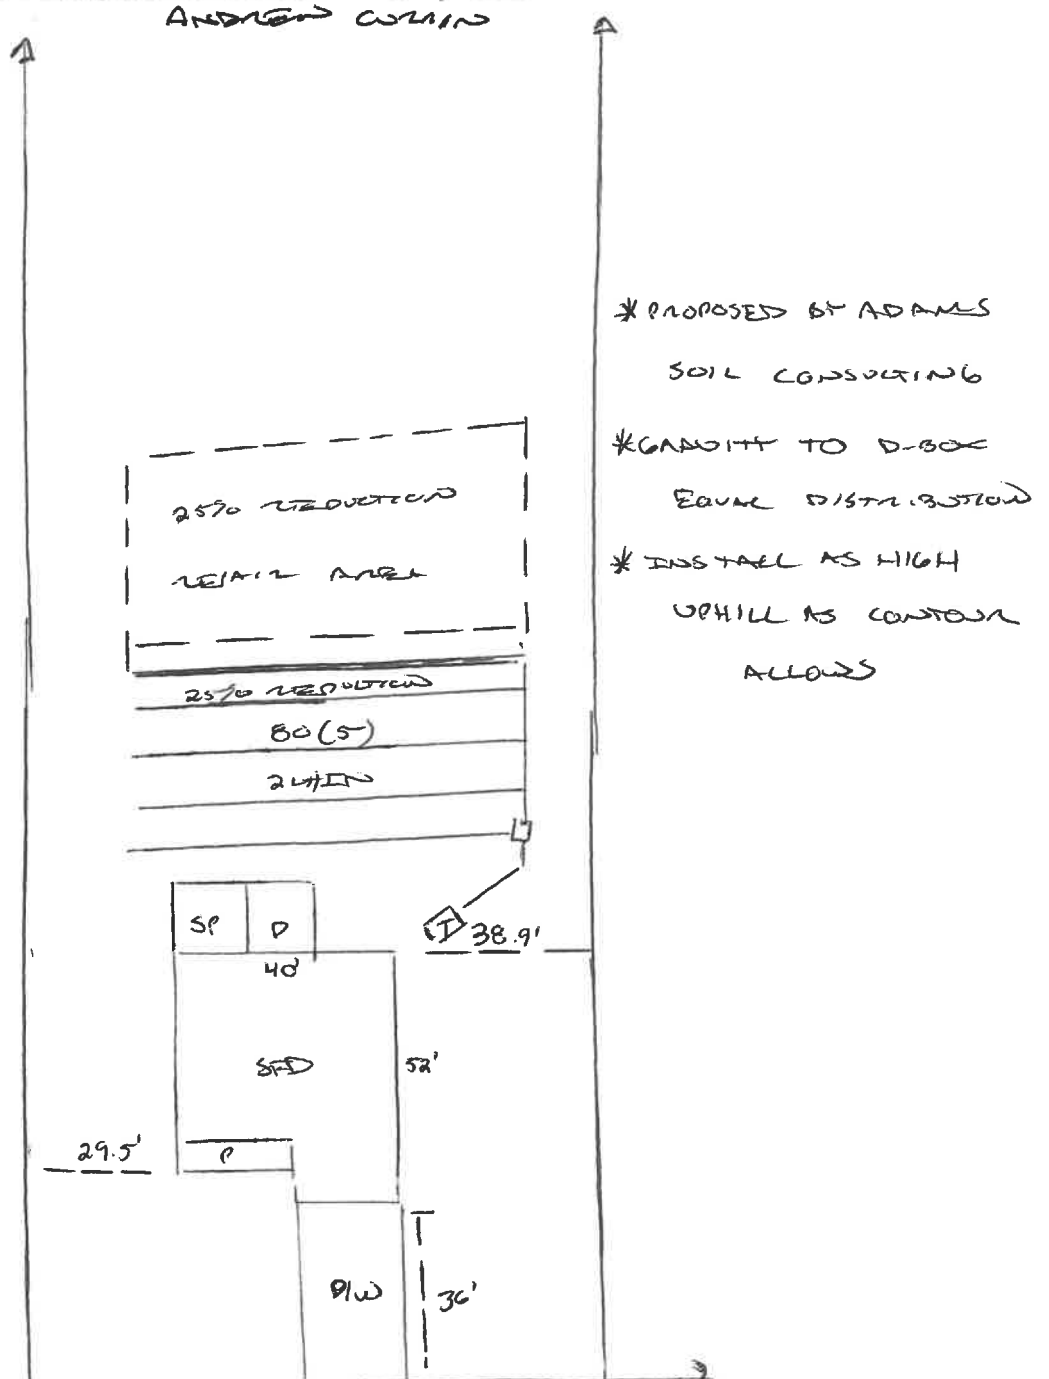 ANDREW CURRIN
* PROPOSED BY ADAMS
SOIL CONSULTING
* GRAVITY TO D-BOX
EQUAL DISTRIBUTION
* INSTALL AS HIGH
UPHILL AS CONTOUR
ALLOWS
25% REDUCTION
REPAIR AREA
25% REDUCTION
80 (5)
SP
D
T
38.9'
40'
SFD
52'
29.5'
P
D/W
36'